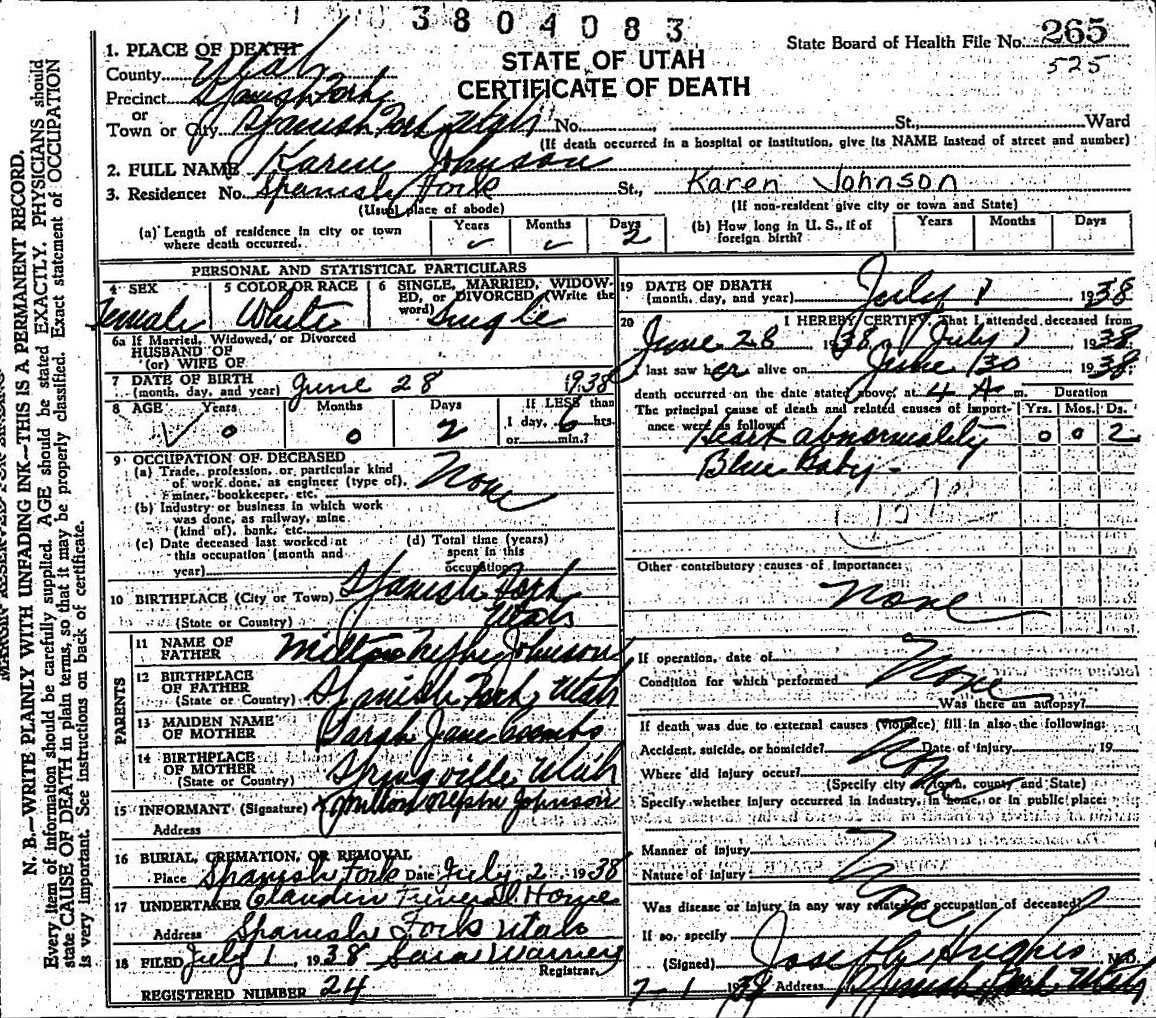 3804083
State Board of Health File No. 265
525
STATE OF UTAH
CERTIFICATE OF DEATH
1. PLACE OF DEATH
County Utah
Precinct Spanish Fork
or
Town or City Spanish Fork, Utah No. St., Ward
(If death occurred in a hospital or institution, give its NAME instead of street and number)
2. FULL NAME Karen Johnson
3. Residence: No. Spanish Fork St., Karen Johnson
(Usual place of abode) (If non-resident give city or town and State)
(a) Length of residence in city or town where death occurred. Years Months Days 2
(b) How long in U. S., if of foreign birth? Years Months Days
PERSONAL AND STATISTICAL PARTICULARS
4 SEX Female
5 COLOR OR RACE White
6 SINGLE, MARRIED, WIDOWED, or DIVORCED (Write the word) Single
6a If Married, Widowed, or Divorced
HUSBAND OF
(or) WIFE OF
7 DATE OF BIRTH
(month, day, and year) June 28 1938
8 AGE Years 0 Months 0 Days 2 If LESS than 1 day, 6 hrs. or min.?
9 OCCUPATION OF DECEASED
(a) Trade, profession, or particular kind
of work done, as engineer (type of),
miner, bookkeeper, etc. None
(b) Industry or business in which work
was done, as railway, mine
(kind of), bank, etc.
(c) Date deceased last worked at
this occupation (month and
year)
(d) Total time (years)
spent in this
occupation
10 BIRTHPLACE (City or Town) Spanish Fork
(State or Country) Utah
PARENTS
11 NAME OF
FATHER Milton Nephi Johnson
12 BIRTHPLACE
OF FATHER
(State or Country) Spanish Fork, Utah
13 MAIDEN NAME
OF MOTHER Sarah Jane Coombs
14 BIRTHPLACE
OF MOTHER
(State or Country) Springville Utah
15 INFORMANT (Signature) x Milton Nephi Johnson
Address
16 BURIAL, CREMATION, OR REMOVAL
Place Spanish Fork Date July 2, 1938
17 UNDERTAKER Claudin Funeral Home
Address Spanish Fork Utah
18 FILED July 1, 1938 Sara Warner
Registrar.
REGISTERED NUMBER 24
19 DATE OF DEATH
(month, day, and year) July 1 1938
20 I HEREBY CERTIFY, That I attended deceased from
June 28, 1938, July 1, 1938
I last saw her alive on June 30, 1938
death occurred on the date stated above, at 4 A m. Duration
The principal cause of death and related causes of importance were as follows: Yrs. Mos. Ds.
Heart abnormality 0 0 2
Blue Baby
Other contributory causes of importance:
None
If operation, date of
Condition for which performed None
Was there an autopsy?
If death was due to external causes (Violence) fill in also the following:
Accident, suicide, or homicide? None Date of injury 19
Where did injury occur?
(Specify city or town, county and State)
Specify whether injury occurred in industry, in home, or in public place:
Manner of injury
Nature of injury None
Was disease or injury in any way related to occupation of deceased?
If so, specify
(Signed) Joseph Hughes M.D.
7-1 1938 Address Spanish Fork, Utah
N. B.—WRITE PLAINLY WITH UNFADING INK—THIS IS A PERMANENT RECORD.
Every item of information should be carefully supplied. AGE should be stated EXACTLY. PHYSICIANS should
state CAUSE OF DEATH in plain terms, so that it may be properly classified. Exact statement of OCCUPATION
is very important. See instructions on back of certificate.